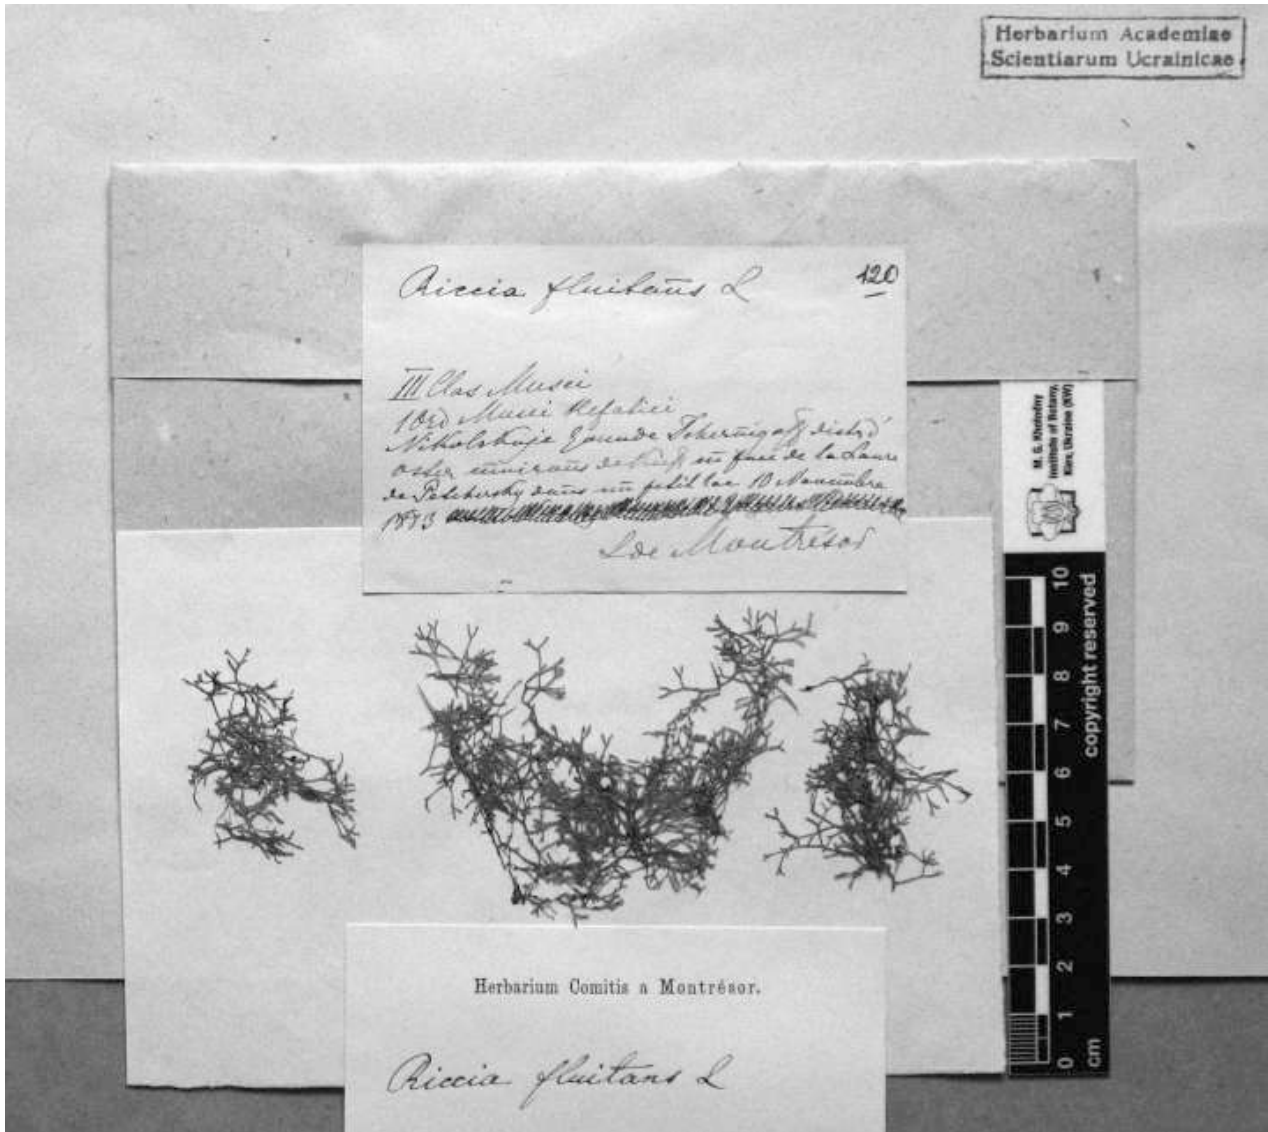 Herbarium Academiae
Scientiarum Ucrainicae
Riccia fluitans L
120
III Clas Musci
1 Ord Musci Hepatici
Nikolskoje Gouv de Tchernigoff distr
oster environs de Kieff en face de la Laure
de Petchersky dans un petit lac 10 Novembre
1883
L de Montrésor
M. G. Kholodny
Institute of Botany,
Kiev, Ukraine (KW)
10
9
8
7
6
5
4
3
2
1
0
cm
copyright reserved
Herbarium Comitis a Montrésor.
Riccia fluitans L